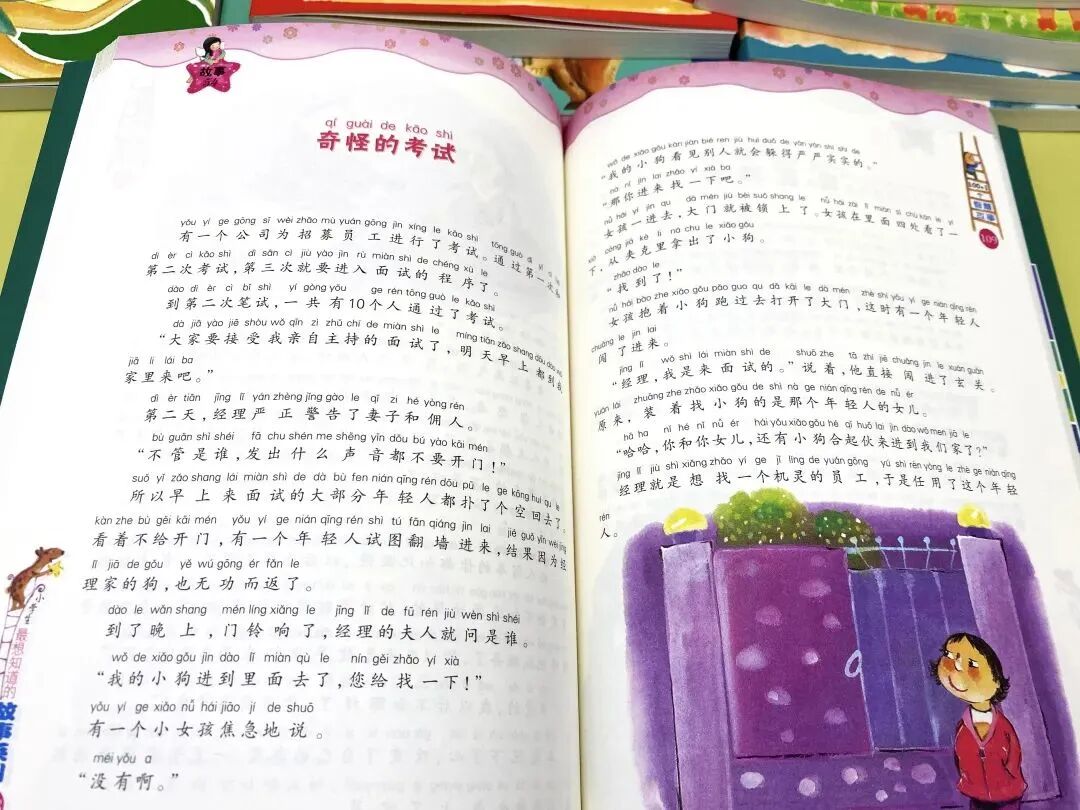 故事
54
qí guài de kǎo shì
奇怪的考试
yǒu yí ge gōng sī wèi zhāo mù yuán gōng jìn xíng le kǎo shì tōng guò dì yī cì
有一个公司为招募员工进行了考试。通过第一次
dì èr cì kǎo shì dì sān cì jiù yào jìn rù miàn shì de chéng xù le
第二次考试,第三次就要进入面试的程序了。
dào dì èr cì bǐ shì yí gòng yǒu ge rén tōng guò le kǎo shì
到第二次笔试,一共有10个人通过了考试。
dà jiā yào jiē shòu wǒ qīn zì zhǔ chí de miàn shì le míng tiān zǎo shang dōu dào wǒ
“大家要接受我亲自主持的面试了,明天早上都到我
jiā li lái ba
家里来吧。”
dì èr tiān jīng lǐ yán zhèng jǐng gào le qī zi hé yòng rén
第二天,经理严正警告了妻子和佣人。
bù guǎn shì shéi fā chu shén me shēng yīn dōu bú yào kāi mén
“不管是谁,发出什么声音都不要开门!”
suǒ yǐ zǎo shang lái miàn shì de dà bù fen nián qīng rén dōu pū le ge kōng huí qu le
所以早上来面试的大部分年轻人都扑了个空回去了。
kàn zhe bù gěi kāi mén yǒu yí ge nián qīng rén shì tú fān qiáng jìn lai jié guǒ yīn wèi jīng
看着不给开门,有一个年轻人试图翻墙进来,结果因为经
lǐ jiā de gǒu yě wú gōng ér fǎn le
理家的狗,也无功而返了。
dào le wǎn shang mén líng xiǎng le jīng lǐ de fū rén jiù wèn shì shéi
到了晚上,门铃响了,经理的夫人就问是谁。
wǒ de xiǎo gǒu jìn dào lǐ miàn qù le nín gěi zhǎo yí xià
“我的小狗进到里面去了,您给找一下!”
yǒu yí ge xiǎo nǚ hái jiāo jí de shuō
有一个小女孩焦急地说。
méi yǒu a
“没有啊。”
小学生
最想知道的
故事系列
wǒ de xiǎo gǒu kàn jiàn bié ren jiù huì duǒ de yán yán shí shí de
“我的小狗看见别人就会躲得严严实实的。”
nà nǐ jìn lai zhǎo yí xià ba
“那你进来找一下吧。”
nǚ hái yí jìn qu dà mén jiù bèi suǒ shang le nǚ hái zài lǐ miàn sì chù kàn le yí
女孩一进去,大门就被锁上了。女孩在里面四处看了一
xià cóng jiā kè li ná chu le xiǎo gǒu
下,从夹克里拿出了小狗。
zhǎo dào le
“找到了!”
nǚ hái bào zhe xiǎo gǒu pǎo guo qu dǎ kāi le dà mén zhè shí yǒu yí ge nián qīng rén
女孩抱着小狗跑过去打开了大门,这时有一个年轻人
chuǎng le jìn lai
闯了进来。
jīng lǐ wǒ shì lái miàn shì de shuō zhe tā zhí jiē chuǎng jìn le xuán guān
“经理,我是来面试的。”说着,他直接闯进了玄关。
yuán lái zhuāng zhe zhǎo xiǎo gǒu de shì nà ge nián qīng rén de nǚ ér
原来,装着找小狗的是那个年轻人的女儿。
hā ha nǐ hé nǐ nǚ ér hái yǒu xiǎo gǒu hé qǐ huǒ lai jìn dào wǒ men jiā le
“哈哈,你和你女儿,还有小狗合起伙来进到我们家了?”
jīng lǐ jiù shì xiǎng zhǎo yí ge jī líng de yuán gōng yú shì rèn yòng le zhè ge nián qīng
经理就是想找一个机灵的员工,于是任用了这个年轻
rén
人。
智慧
故事
109